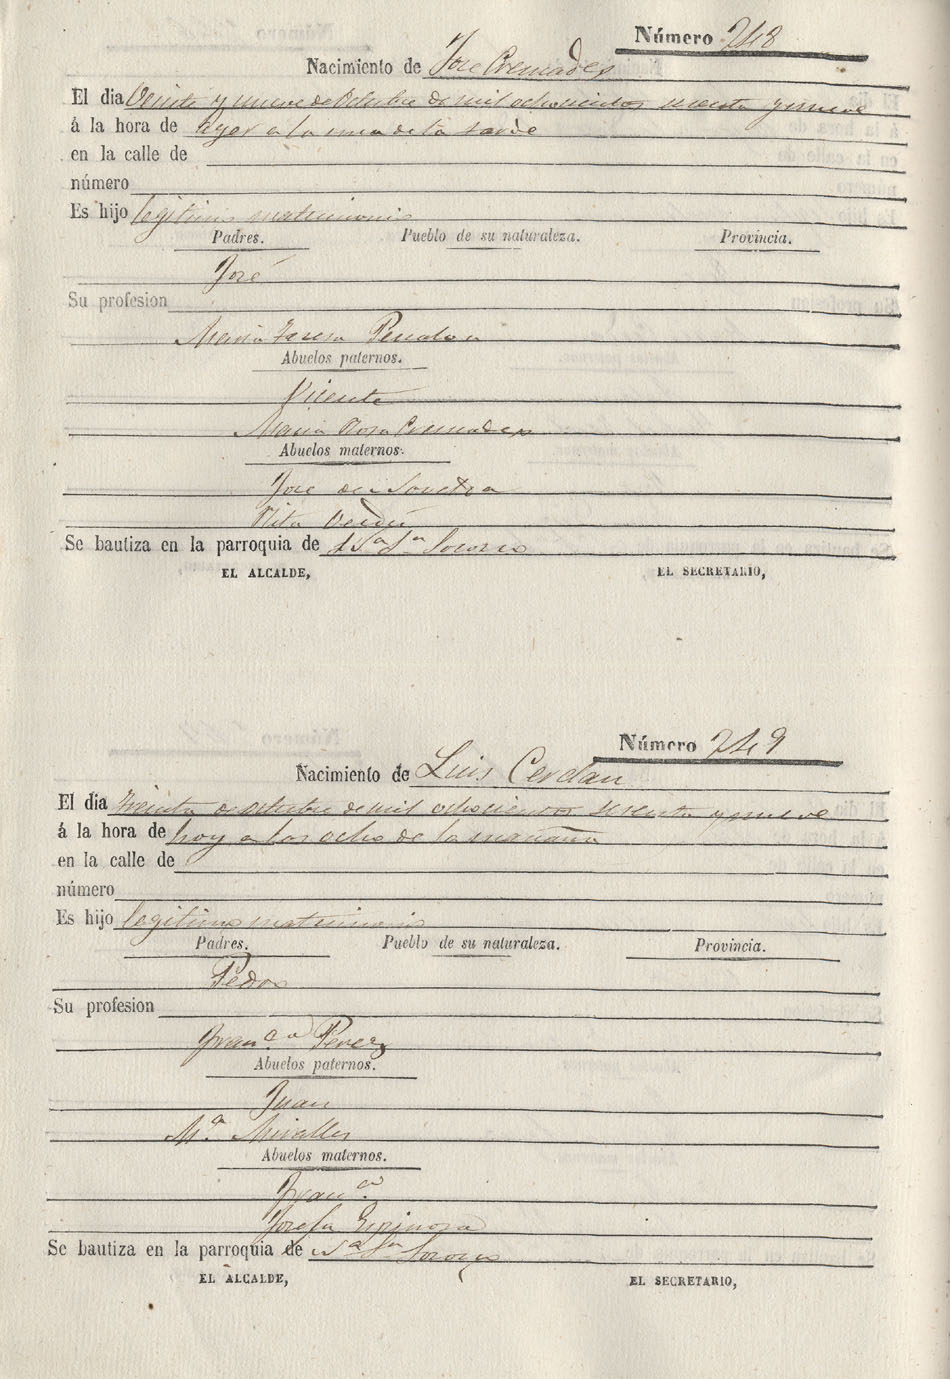 Número 748
Nacimiento de José Cremades
El dia Veinte y nueve de Octubre de mil ochocientos sesenta y nueve
á la hora de hayer a la una de la tarde
en la calle de
número
Es hijo legitimo matrimonio
Padres. Pueblo de su naturaleza. Provincia.
José
Su profesion
Maria Teresa Penalva
Abuelos paternos.
Vicente
Maria Rosa Cremades
Abuelos maternos.
José de
Rita Verdú
Se bautiza en la parroquia de Nª Sª Socorro
EL ALCALDE, EL SECRETARIO,
Número 749
Nacimiento de Luis Cerdan
El dia treinta de octubre de mil ochocientos sesenta y nueve
á la hora de hoy a las ocho de la mañana
en la calle de
número
Es hijo legitimo matrimonio
Padres. Pueblo de su naturaleza. Provincia.
Pedro
Su profesion
Franca Perez
Abuelos paternos.
Juan
Mª Miralles
Abuelos maternos.
Franco
Josefa Espinosa
Se bautiza en la parroquia de Nª Sª Socorro
EL ALCALDE, EL SECRETARIO,